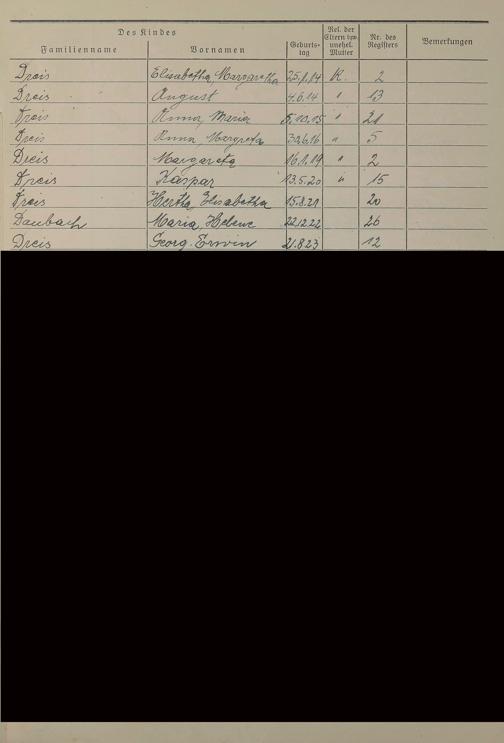 Des Kindes
Familienname Vornamen Geburts-tag Rel. der Eltern bzw. unehel. Mutter Nr. des Registers Bemerkungen
Dreis Elisabetha, Margaretha 25.1.14 K. 2
Dreis August 4.6.14 " 13
Dreis Anna, Maria 5.10.15 " 21
Dreis Anna, Margreta 30.6.16 " 5
Dreis Margareta 16.1.19 " 2
Dreis Kaspar 13.5.20 " 15
Dreis Hertha, Elisabetha 15.8.21 20
Daubach Maria, Helene 22.12.22 26
Dreis Georg. Erwin 21.8.23 12